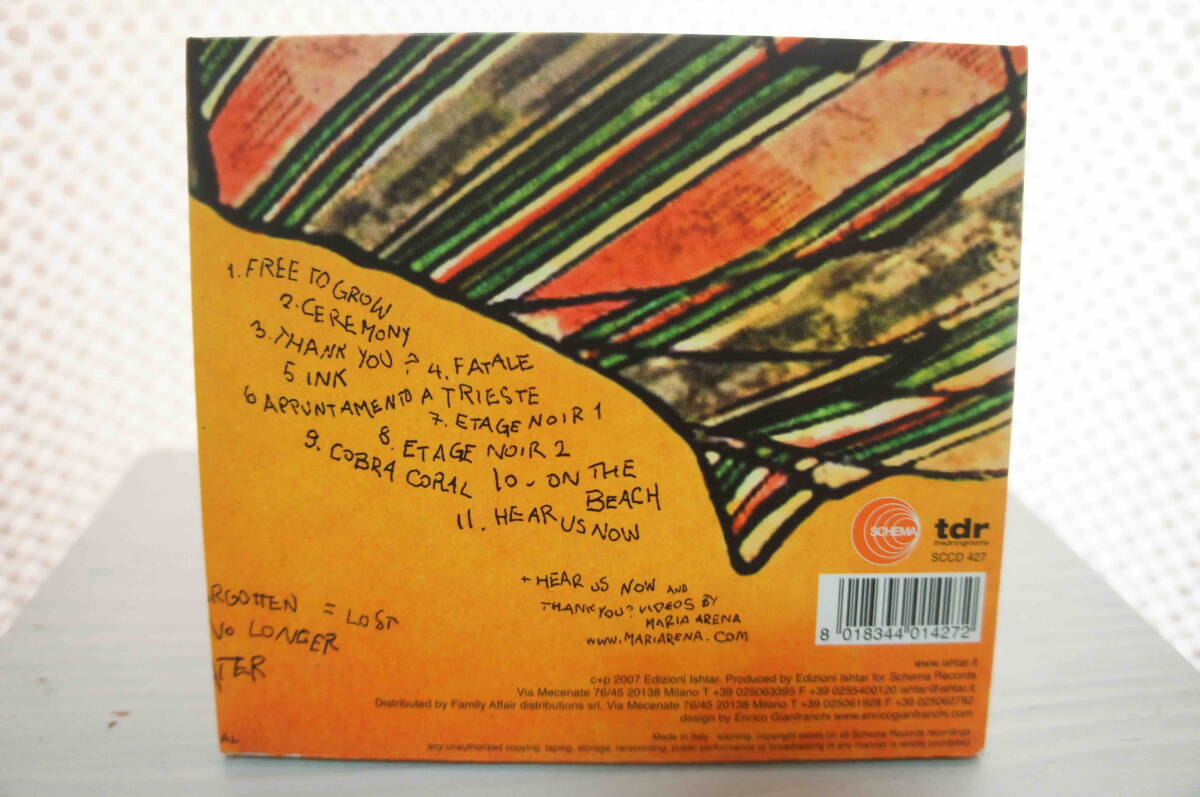 1. FREE TO GROW
2. CEREMONY
3. THANK YOU? 4. FATALE
5. INK
6 APPUNTAMENTO A TRIESTE
7. ETAGE NOIR 1
8. ETAGE NOIR 2
9. COBRA CORAL 10- ON THE
BEACH
11. HEAR US NOW
+ HEAR US NOW AND
THANK YOU? VIDEOS BY
MARIA ARENA
WWW.MARIARENA.COM
RGOTTEN = LOST
NO LONGER
TER
AL
SCHEMA
tdr
thediningrooms
SCCD 427
8 018344 014272
www.ishtar.it
c+p 2007 Edizioni Ishtar. Produced by Edizioni Ishtar for Schema Records
Via Mecenate 76/45 20138 Milano T +39 025063395 F +39 0255400120 ishtar@ishtar.it
Distributed by Family Affair distributions srl. Via Mecenate 76/45 20138 Milano T +39 025061928 F +39 025062782
design by Enrico Gianfranchi www.enricogianfranchi.com
Made in Italy warning: copyright exists on all Schema Records recordings
any unauthorized copying, taping, storage, rerecording, public performance or broadcasting in any manner is strictly prohibited